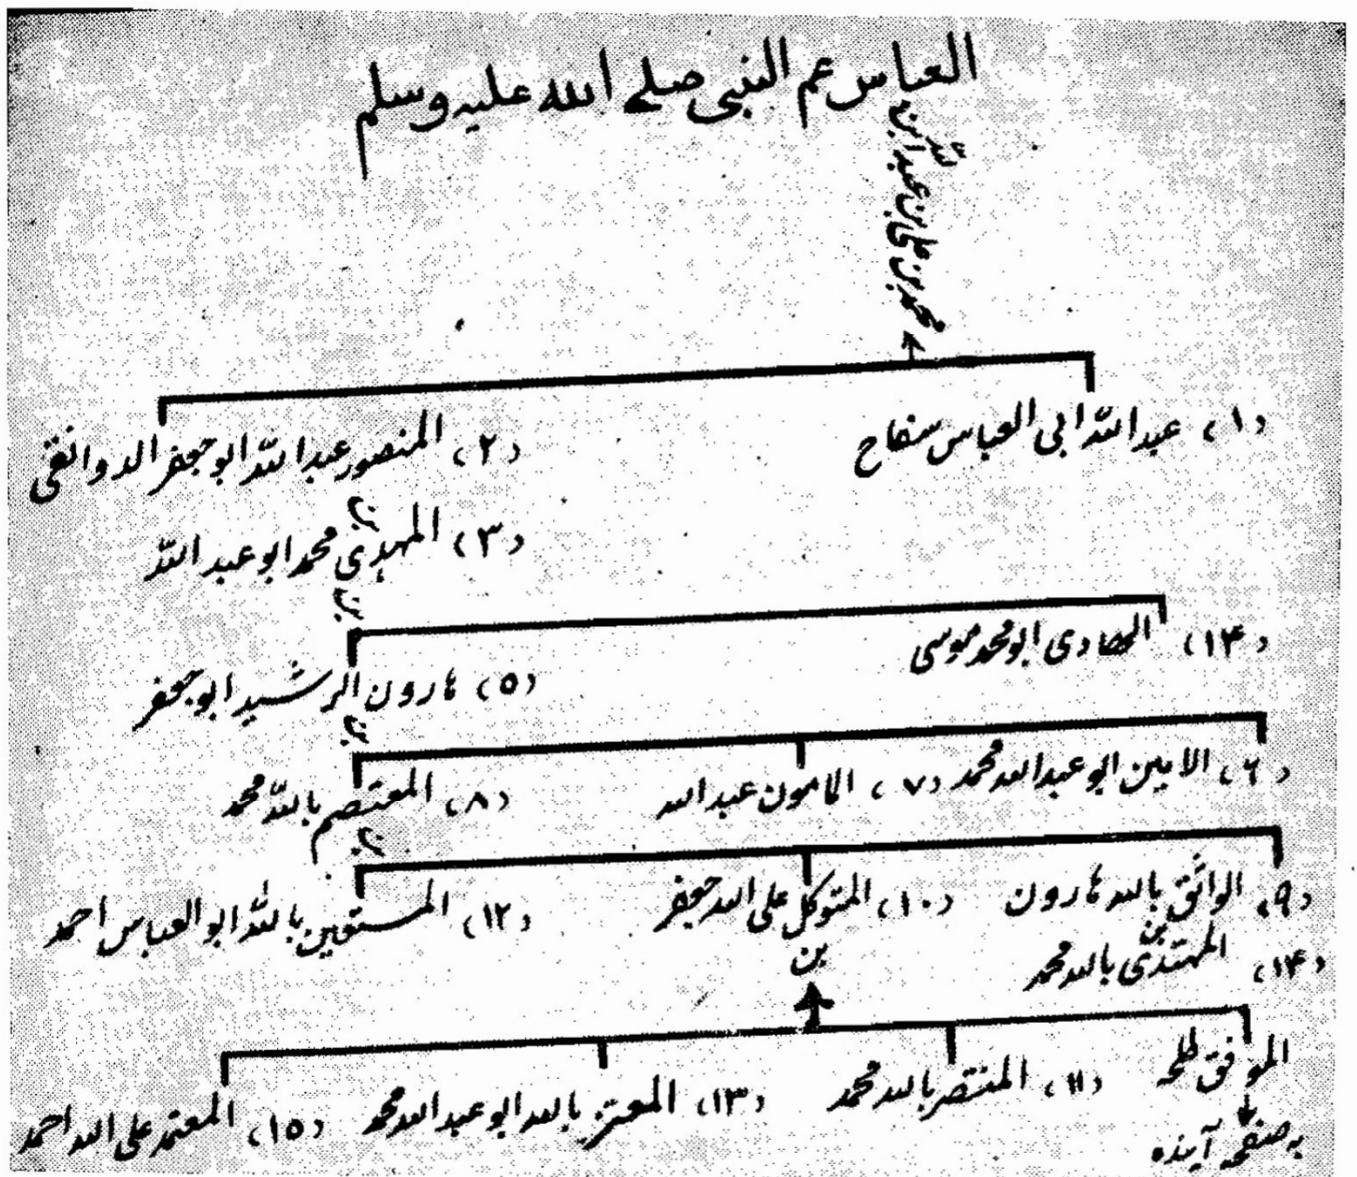 العباس عم النبی صلے الله علیہ وسلم
محمد بن علی بن عبدالله بن
(۱) عبد اللہ ابی العباس سفاح
(۲) المنصور عبد اللہ ابو جعفر الدوانقی
بن
(۳) المہدی محمد ابو عبد اللہ
بن
(۱۴) الھادی ابو محمد موسی
(۵) ہارون الرشید ابو جعفر
بن
(۶) الامین ابو عبد اللہ محمد (۷) المامون عبد اللہ
(۸) المعتصم باللہ محمد
بن
(۹) الواثق باللہ ہارون (۱۰) المتوکل علی اللہ جعفر (۱۲) المستعین باللہ ابو العباس احمد
بن
(۱۴) المہتدی باللہ محمد
بن
الموفق طلحہ (۱۱) المنتصر باللہ محمد (۱۳) المعتز باللہ ابو عبد اللہ محمد (۱۵) المعتمد علی اللہ احمد
بہ صفحہ آیندہ